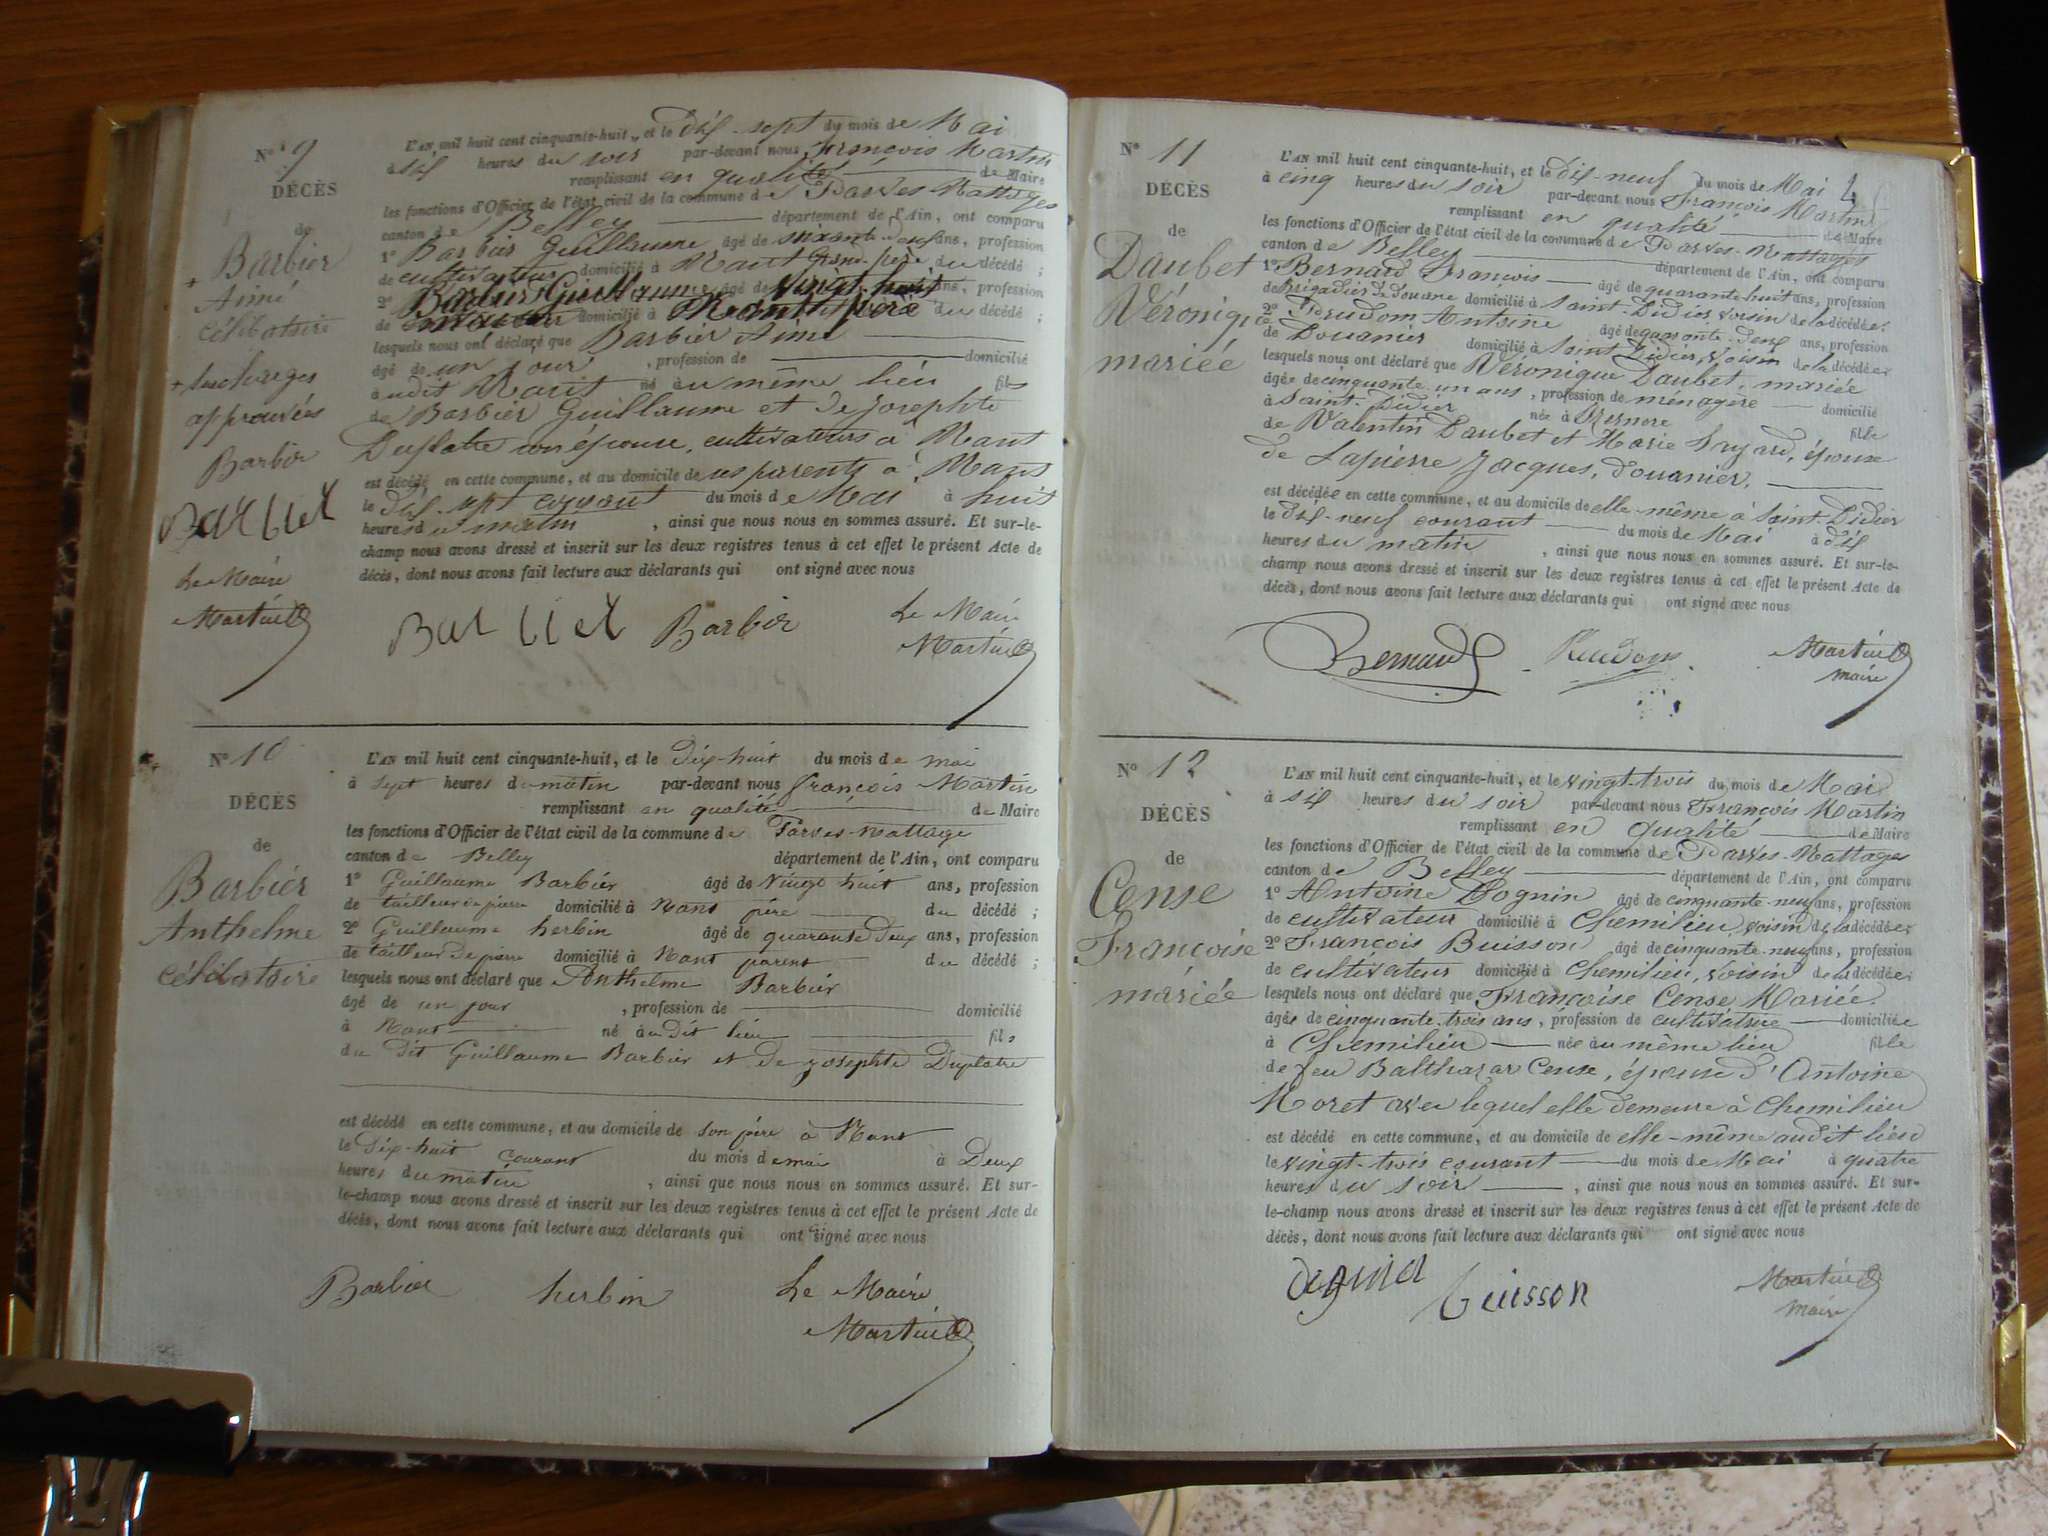 N° 9
DÉCÈS
de
Barbier
Aimé
célibataire
+ surcharges
approuvées
Barbier
Barbier
Le Maire
Martin
L'AN mil huit cent cinquante-huit, et le dix-sept du mois de Mai
à six heures du soir par-devant nous François Martin
remplissant en qualité de Maire
les fonctions d'Officier de l'état civil de la commune de Parves-Nattages
canton de Belley département de l'Ain, ont comparu
1° Barbier Guillaume âgé de ans, profession
de cultivateur domicilié à Nant grand-père du décédé ;
2° Barbier Guillaume âgé de vingt-huit ans, profession
de domicilié à Nant père du décédé ;
lesquels nous ont déclaré que Barbier Aimé
âgé de un jour , profession de domicilié
audit Nant né au même lieu fils
de Barbier Guillaume et de Josephte
Duplatre son épouse, cultivateurs à Nant
est décédé en cette commune, et au domicile de ses parents à Nant
le dix-sept courant du mois de Mai à huit
heures du matin , ainsi que nous nous en sommes assuré. Et sur-le-
champ nous avons dressé et inscrit sur les deux registres tenus à cet effet le présent Acte de
décès, dont nous avons fait lecture aux déclarants qui ont signé avec nous
Barbier Barbier Le Maire
Martin
N° 10
DÉCÈS
de
Barbier
Anthelme
célibataire
L'AN mil huit cent cinquante-huit, et le Dix-huit du mois de mai
à sept heures du matin par-devant nous François Martin
remplissant en qualité de Maire
les fonctions d'Officier de l'état civil de la commune de Parves-Nattage
canton de Belley département de l'Ain, ont comparu
1° Guillaume Barbier âgé de vingt huit ans, profession
de tailleur de pierre domicilié à Nant père du décédé ;
2° Guillaume herbin âgé de quarante deux ans, profession
de tailleur de pierre domicilié à Nant parent du décédé ;
lesquels nous ont déclaré que Anthelme Barbier
âgé de un jour , profession de domicilié
à Nant né au Dit lieu fils
du Dit Guillaume Barbier et de Josephte Duplatre
est décédé en cette commune, et au domicile de son père à Nant
le Dix-huit courant du mois de mai à Deux
heures du matin , ainsi que nous nous en sommes assuré. Et sur-
le-champ nous avons dressé et inscrit sur les deux registres tenus à cet effet le présent Acte de
décès, dont nous avons fait lecture aux déclarants qui ont signé avec nous
Barbier herbin Le Maire
Martin
N° 11
DÉCÈS
de
Daubet
Véronique
mariée
L'AN mil huit cent cinquante-huit, et le dix-neuf du mois de Mai
à cinq heures du soir par-devant nous François Martin
remplissant en qualité de Maire
les fonctions d'Officier de l'état civil de la commune de Parves-Nattages
canton de Belley département de l'Ain, ont comparu
1° Bernard François âgé de quarante-huit ans, profession
de Brigadier de Douane domicilié à Saint-Didier voisin de la décédée ;
2° Prudom Antoine âgé de quarante-deux ans, profession
de Douanier domicilié à Saint-Didier, voisin de la décédée ;
lesquels nous ont déclaré que Véronique Daubet, mariée
âgée de cinquante-un ans , profession de ménagère domicilié
à Saint-Didier née à fille
de Valentin Daubet et Marie épouse
de Lapierre Jacques, douanier,
est décédée en cette commune, et au domicile de elle-même à Saint-Didier
le dix-neuf courant du mois de Mai à dix
heures du matin , ainsi que nous nous en sommes assuré. Et sur-le-
champ nous avons dressé et inscrit sur les deux registres tenus à cet effet le présent Acte de
décès, dont nous avons fait lecture aux déclarants qui ont signé avec nous
Bernard Prudom Martin
maire
N° 12
DÉCÈS
de
Cense
Françoise
mariée
L'AN mil huit cent cinquante-huit, et le vingt-trois du mois de Mai
à six heures du soir par-devant nous François Martin
remplissant en qualité de Maire
les fonctions d'Officier de l'état civil de la commune de Parves-Nattages
canton de Belley département de l'Ain, ont comparu
1° Antoine Dognin âgé de cinquante-neuf ans, profession
de cultivateur domicilié à Chemilieu, voisin de la décédée ;
2° François Buisson âgé de cinquante-neuf ans, profession
de cultivateur domicilié à Chemilieu, voisin de la décédée ;
lesquels nous ont déclaré que Françoise Cense Mariée
âgée de cinquante-trois ans , profession de cultivatrice domiciliée
à Chemilieu née au même lieu fille
de feu Balthazar Cense, épouse d'Antoine
Moret avec lequel elle demeure à Chemilieu
est décédé en cette commune, et au domicile de elle-même audit lieu
le vingt-trois courant du mois de Mai à quatre
heures du soir , ainsi que nous nous en sommes assuré. Et sur-
le-champ nous avons dressé et inscrit sur les deux registres tenus à cet effet le présent Acte de
décès, dont nous avons fait lecture aux déclarants qui ont signé avec nous
Buisson Martin
maire